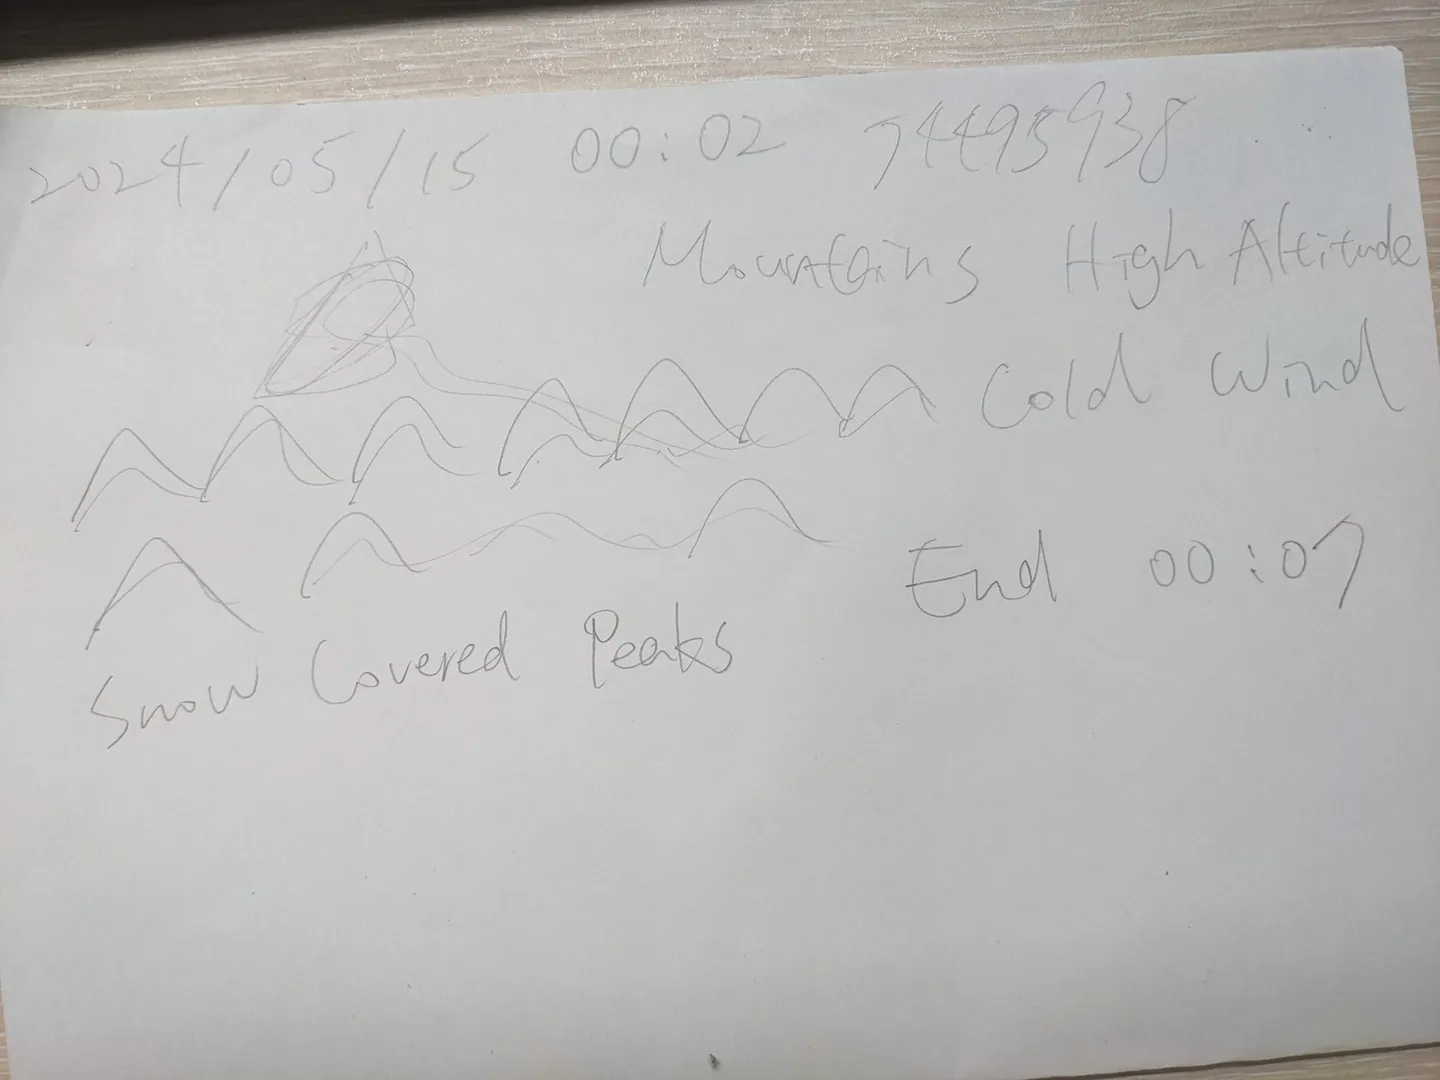 2024/05/15 00:02 74495938
Mountains High Altitude
Cold Wind
End 00:07
Snow Covered Peaks